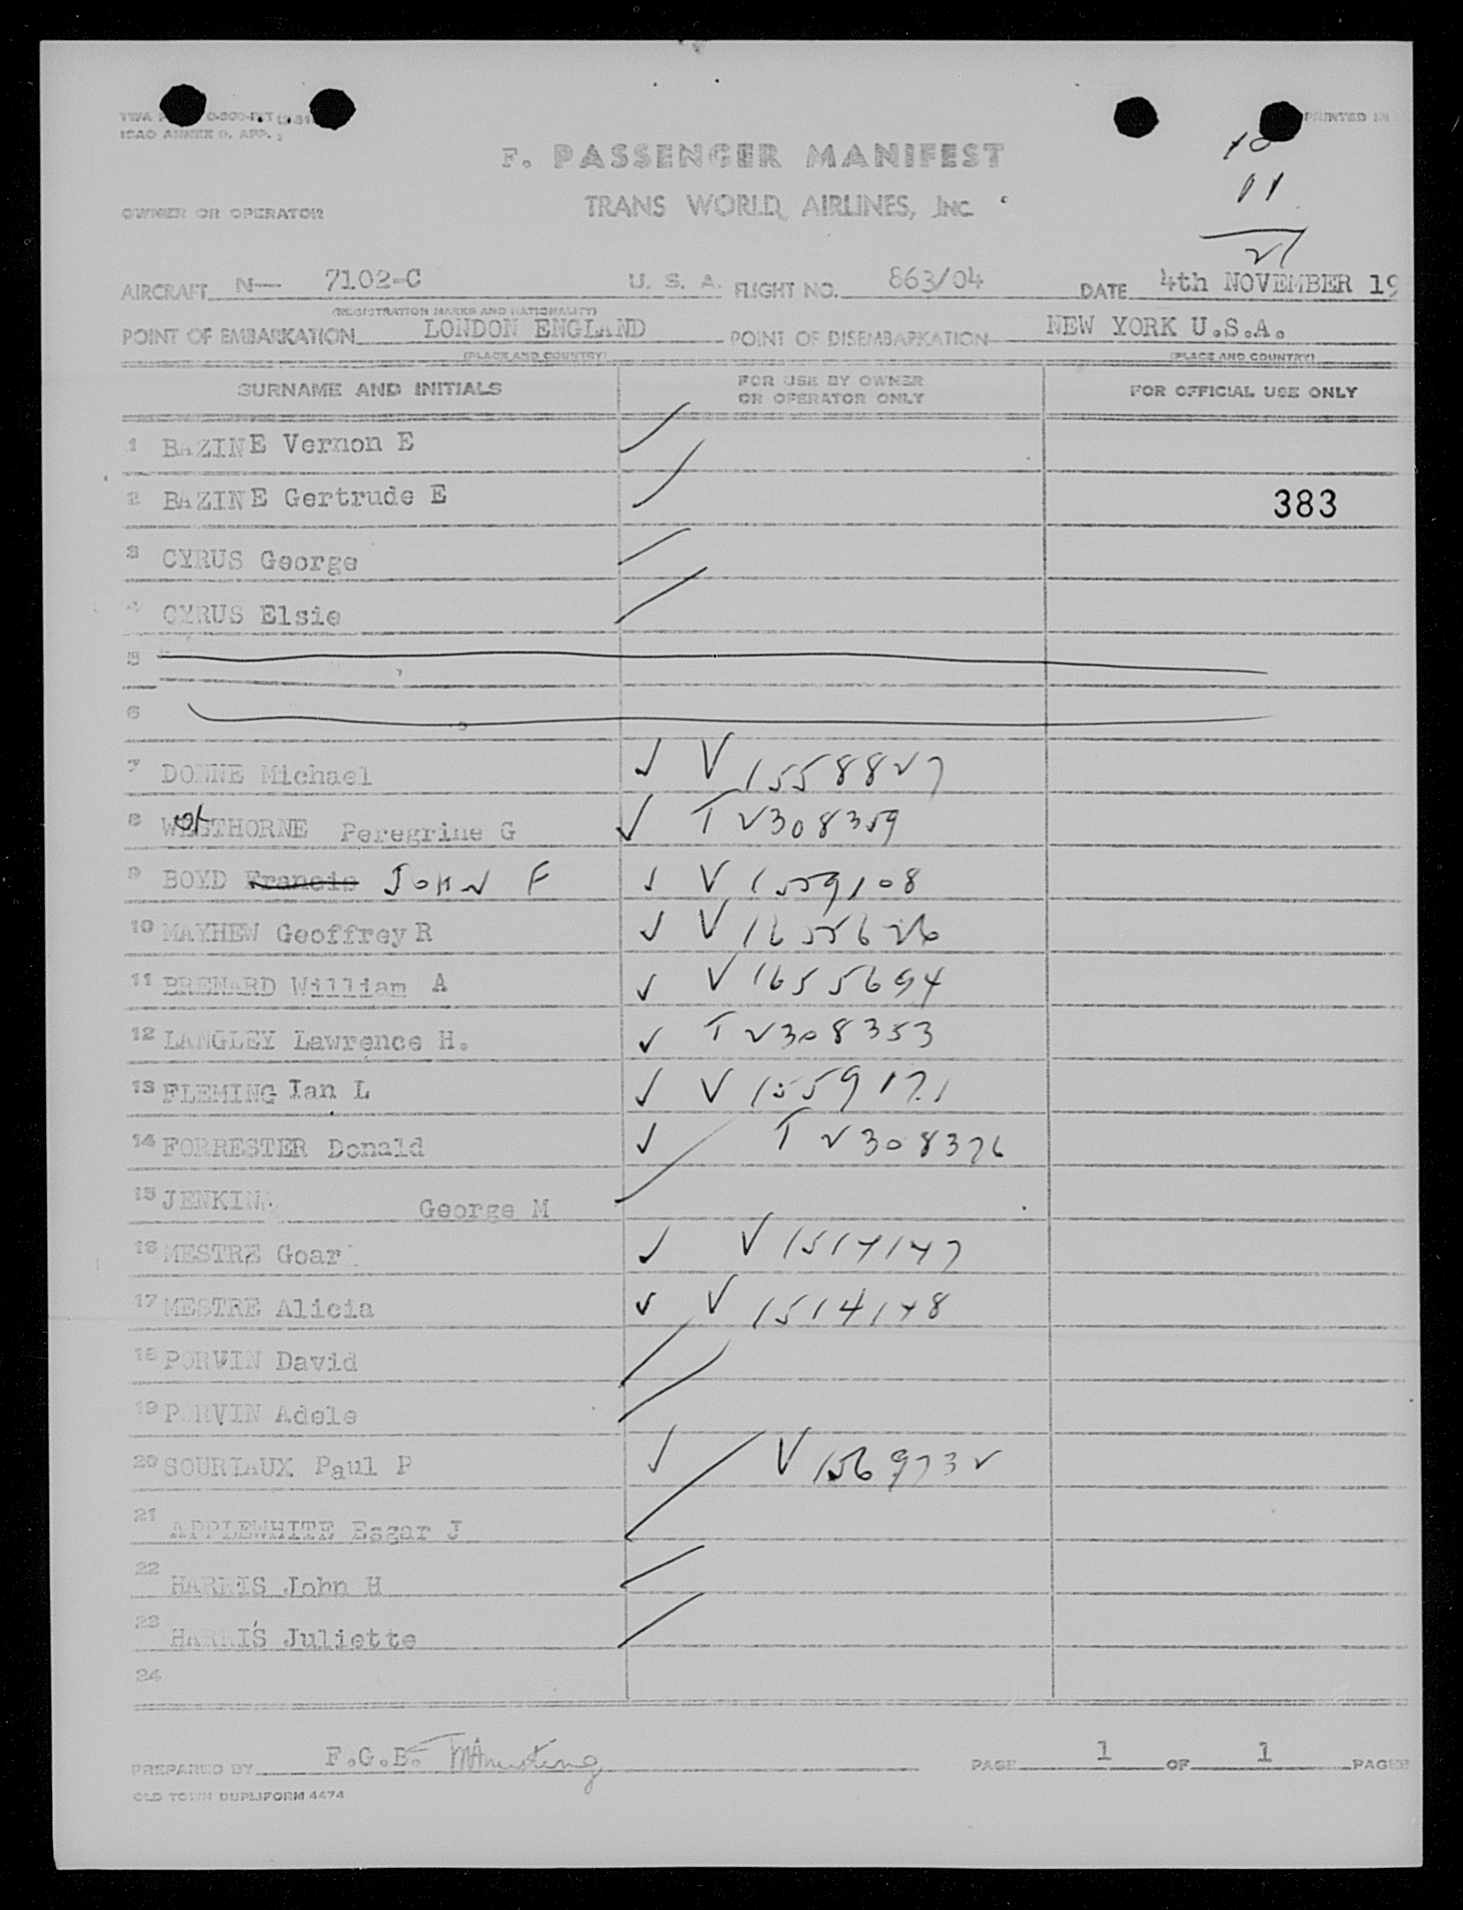 ICAO ANNEX 9. APP.
PRINTED IN
10
11
21
F. PASSENGER MANIFEST
OWNER OR OPERATOR TRANS WORLD AIRLINES, INC.
AIRCRAFT N— 7102-C U. S. A. FLIGHT NO. 863/04 DATE 4th NOVEMBER 19
(REGISTRATION MARKS AND NATIONALITY)
POINT OF EMBARKATION LONDON ENGLAND POINT OF DISEMBARKATION NEW YORK U.S.A.
(PLACE AND COUNTRY) (PLACE AND COUNTRY)
SURNAME AND INITIALS FOR USE BY OWNER OR OPERATOR ONLY FOR OFFICIAL USE ONLY
1 BAZINE Vernon E
2 BAZINE Gertrude E 383
3 CYRUS George
4 CYRUS Elsie
5
6
7 DONNE Michael V 1558827
8 WESTHORNE Peregrine G T 2308359
9 BOYD Francis JOHN F V 1559108
10 MAYHEW Geoffrey R V 1655626
11 BRENARD William A V 1655694
12 LANGLEY Lawrence H. T 2308353
13 FLEMING Ian L V 1559171
14 FORRESTER Donald T 2308376
15 JENKINS George M
16 MESTRE Goar V 1514147
17 MESTRE Alicia V 1514148
18 PORVIN David
19 PORVIN Adele
20 SOURIAUX Paul P V 1569732
21 APPLEWHITE Esgar J
22 HARRIS John H
23 HARRIS Juliette
24
PREPARED BY F.G.B. PAGE 1 OF 1 PAGES
OLD TOWN DUPLIFORM 4474